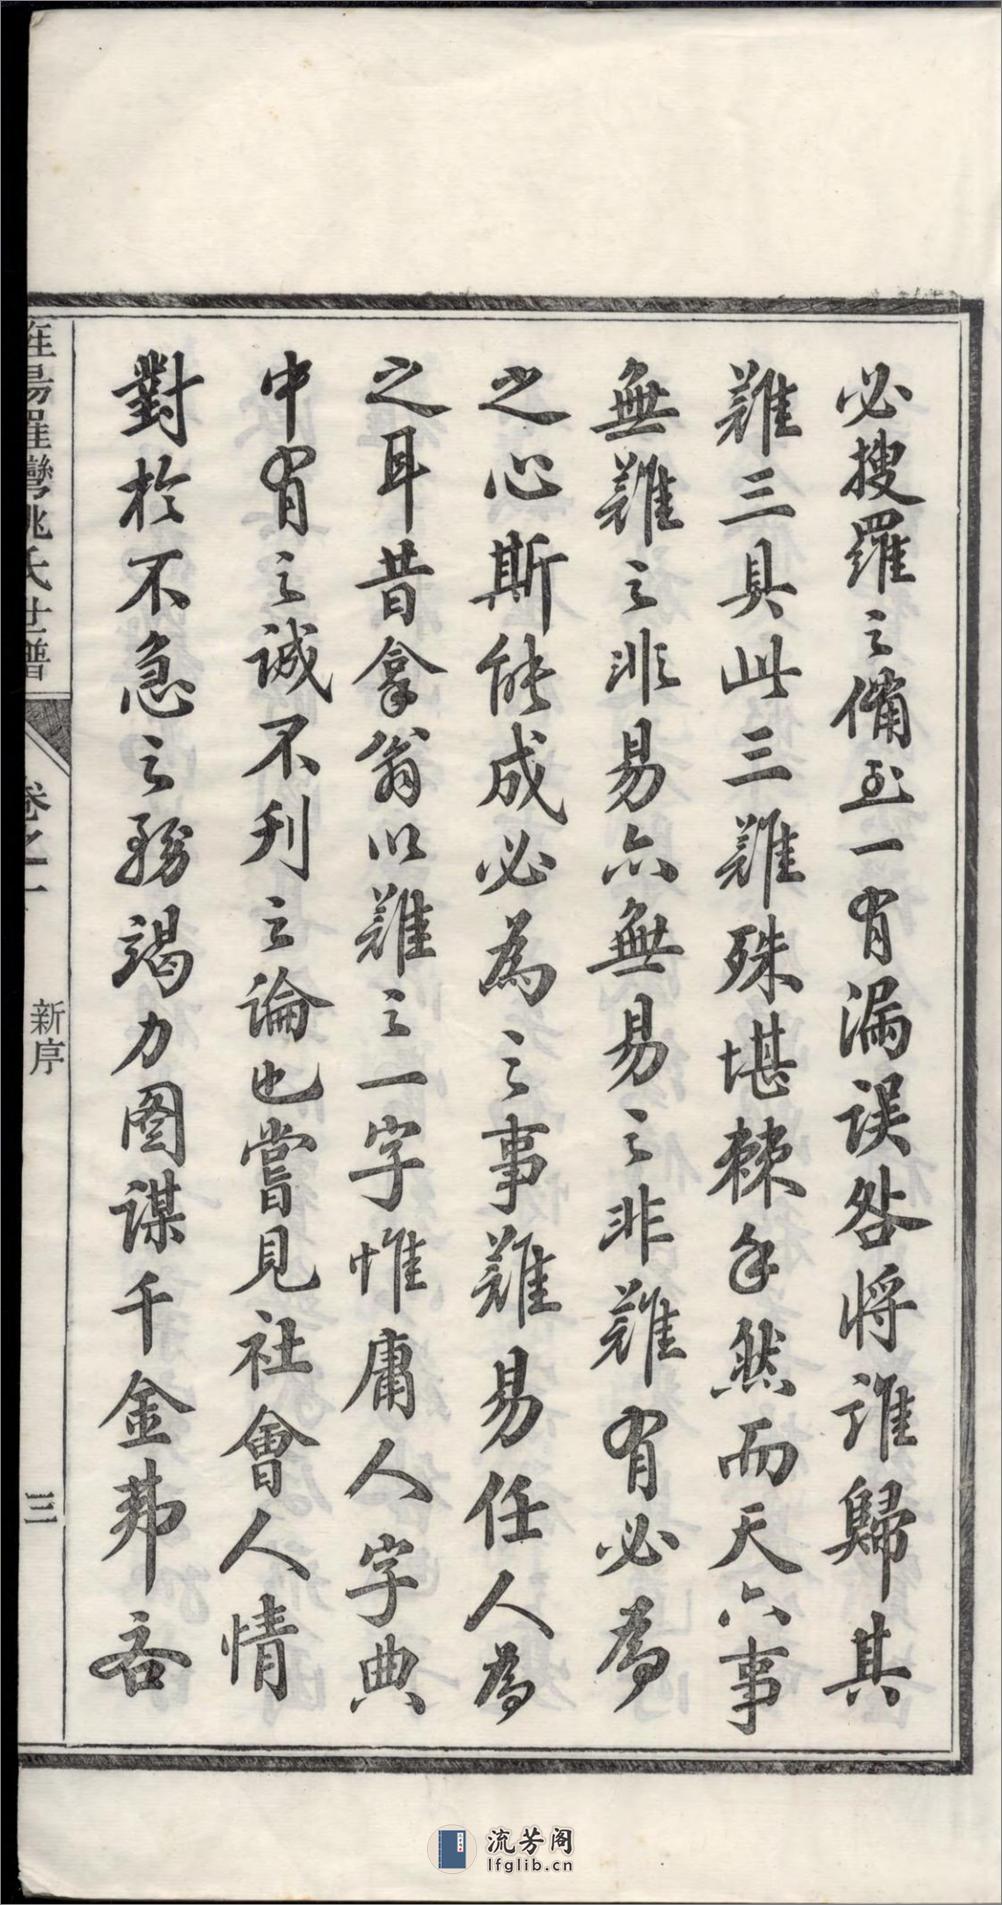 必搜羅之備至一有漏誤咎將誰歸其
難三具此三難殊堪棘手然而天下事
無難之非易亦無易之非難有必為
之心斯能成必為之事難易任人為
之耳昔拿翁以難之一字惟庸人字典
中有之誠不刊之論也嘗見社會人情
對於不急之務竭力圖謀千金弗吝
羅灣姚氏世譜
卷之一
新序
三
流芳阁
lfglib.cn